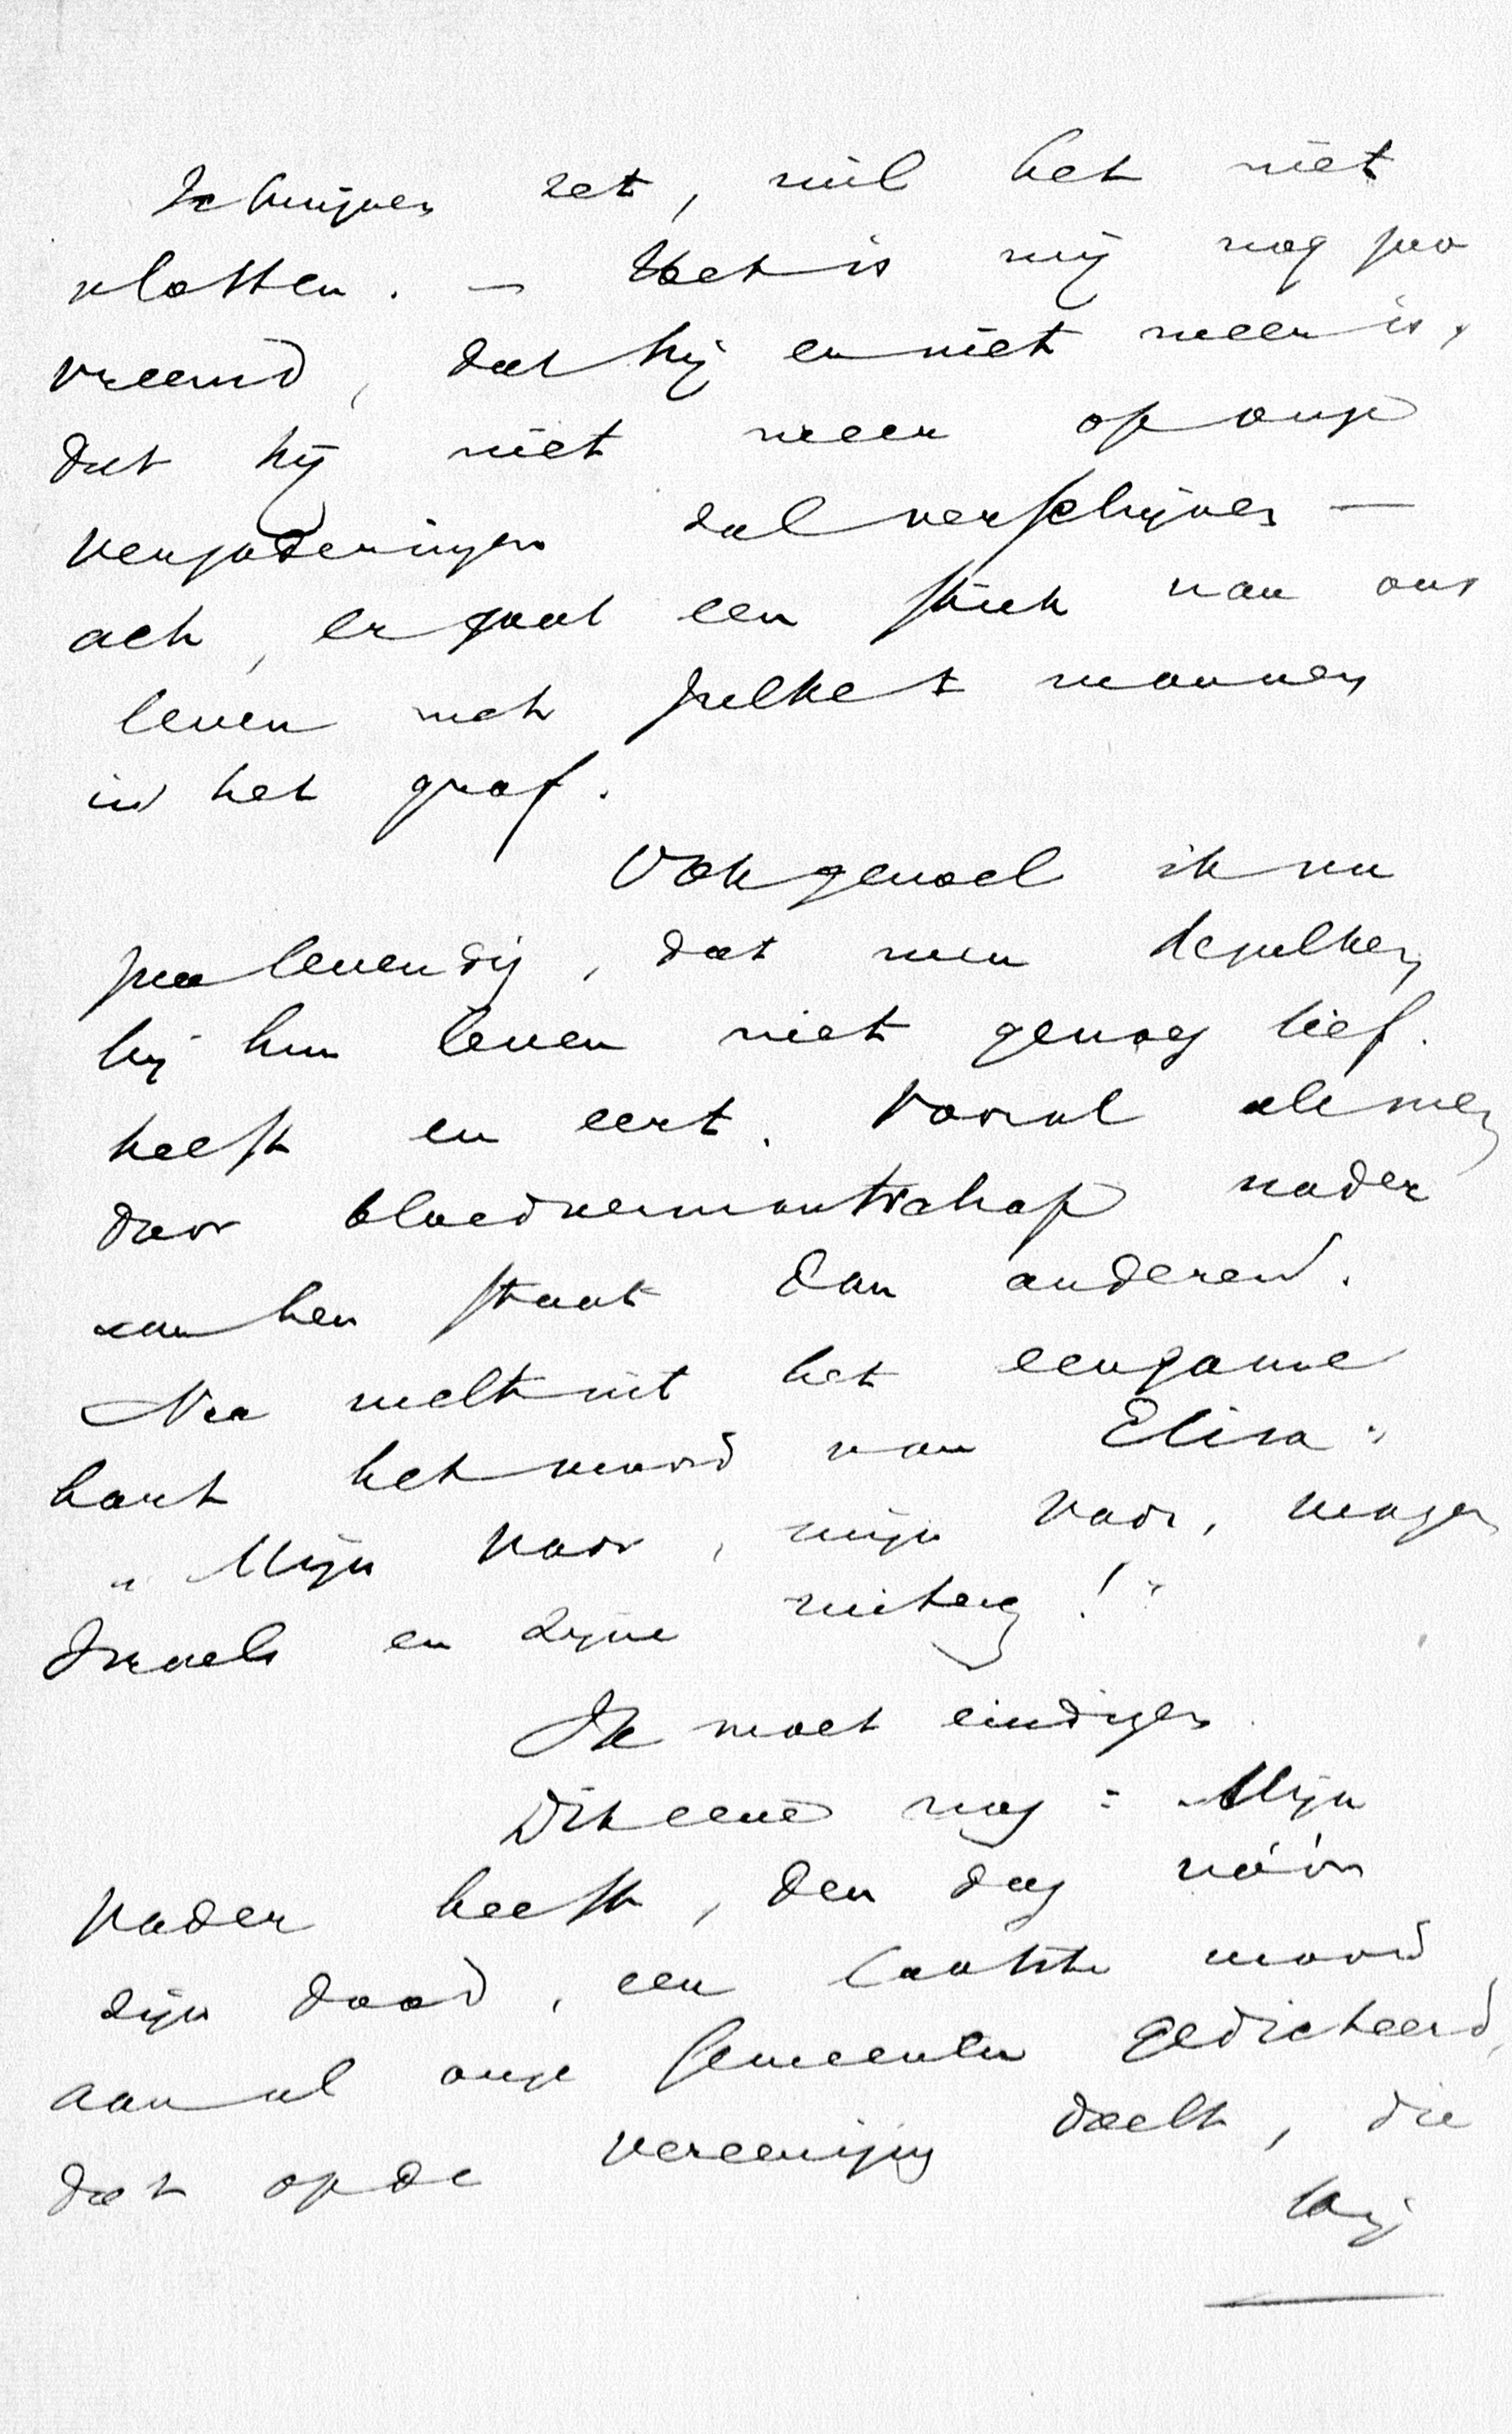 schrijven zet, wil het niet
vlotten. — Het is mij nog zoo
vreemd, dat hij er niet meer is,
dat hij niet meer op onze
vergaderingen zal verschijnen —
ach, er gaat een stuk van ons
leven met zulke mannen
in het graf.
Ook gevoel ik nu
zoo levendig, dat men dezulken
bij hun leven niet genoeg lief-
heeft en eert. Vooral als men
door bloedverwantschap nader
aan hen staat dan anderen.
Nu welt uit het eenzame
hart het woord van Elisa:
„Mijn vader, mijn vader, wagen
Israels en zijne ruiteren!"
Ik moet eindigen.
Dit eene nog: Mijn
vader heeft, den dag vóór
zijn dood, een laatste woord
aan al onze Gemeenten gedicteerd,
dat op de vereeniging doelt, die
hij